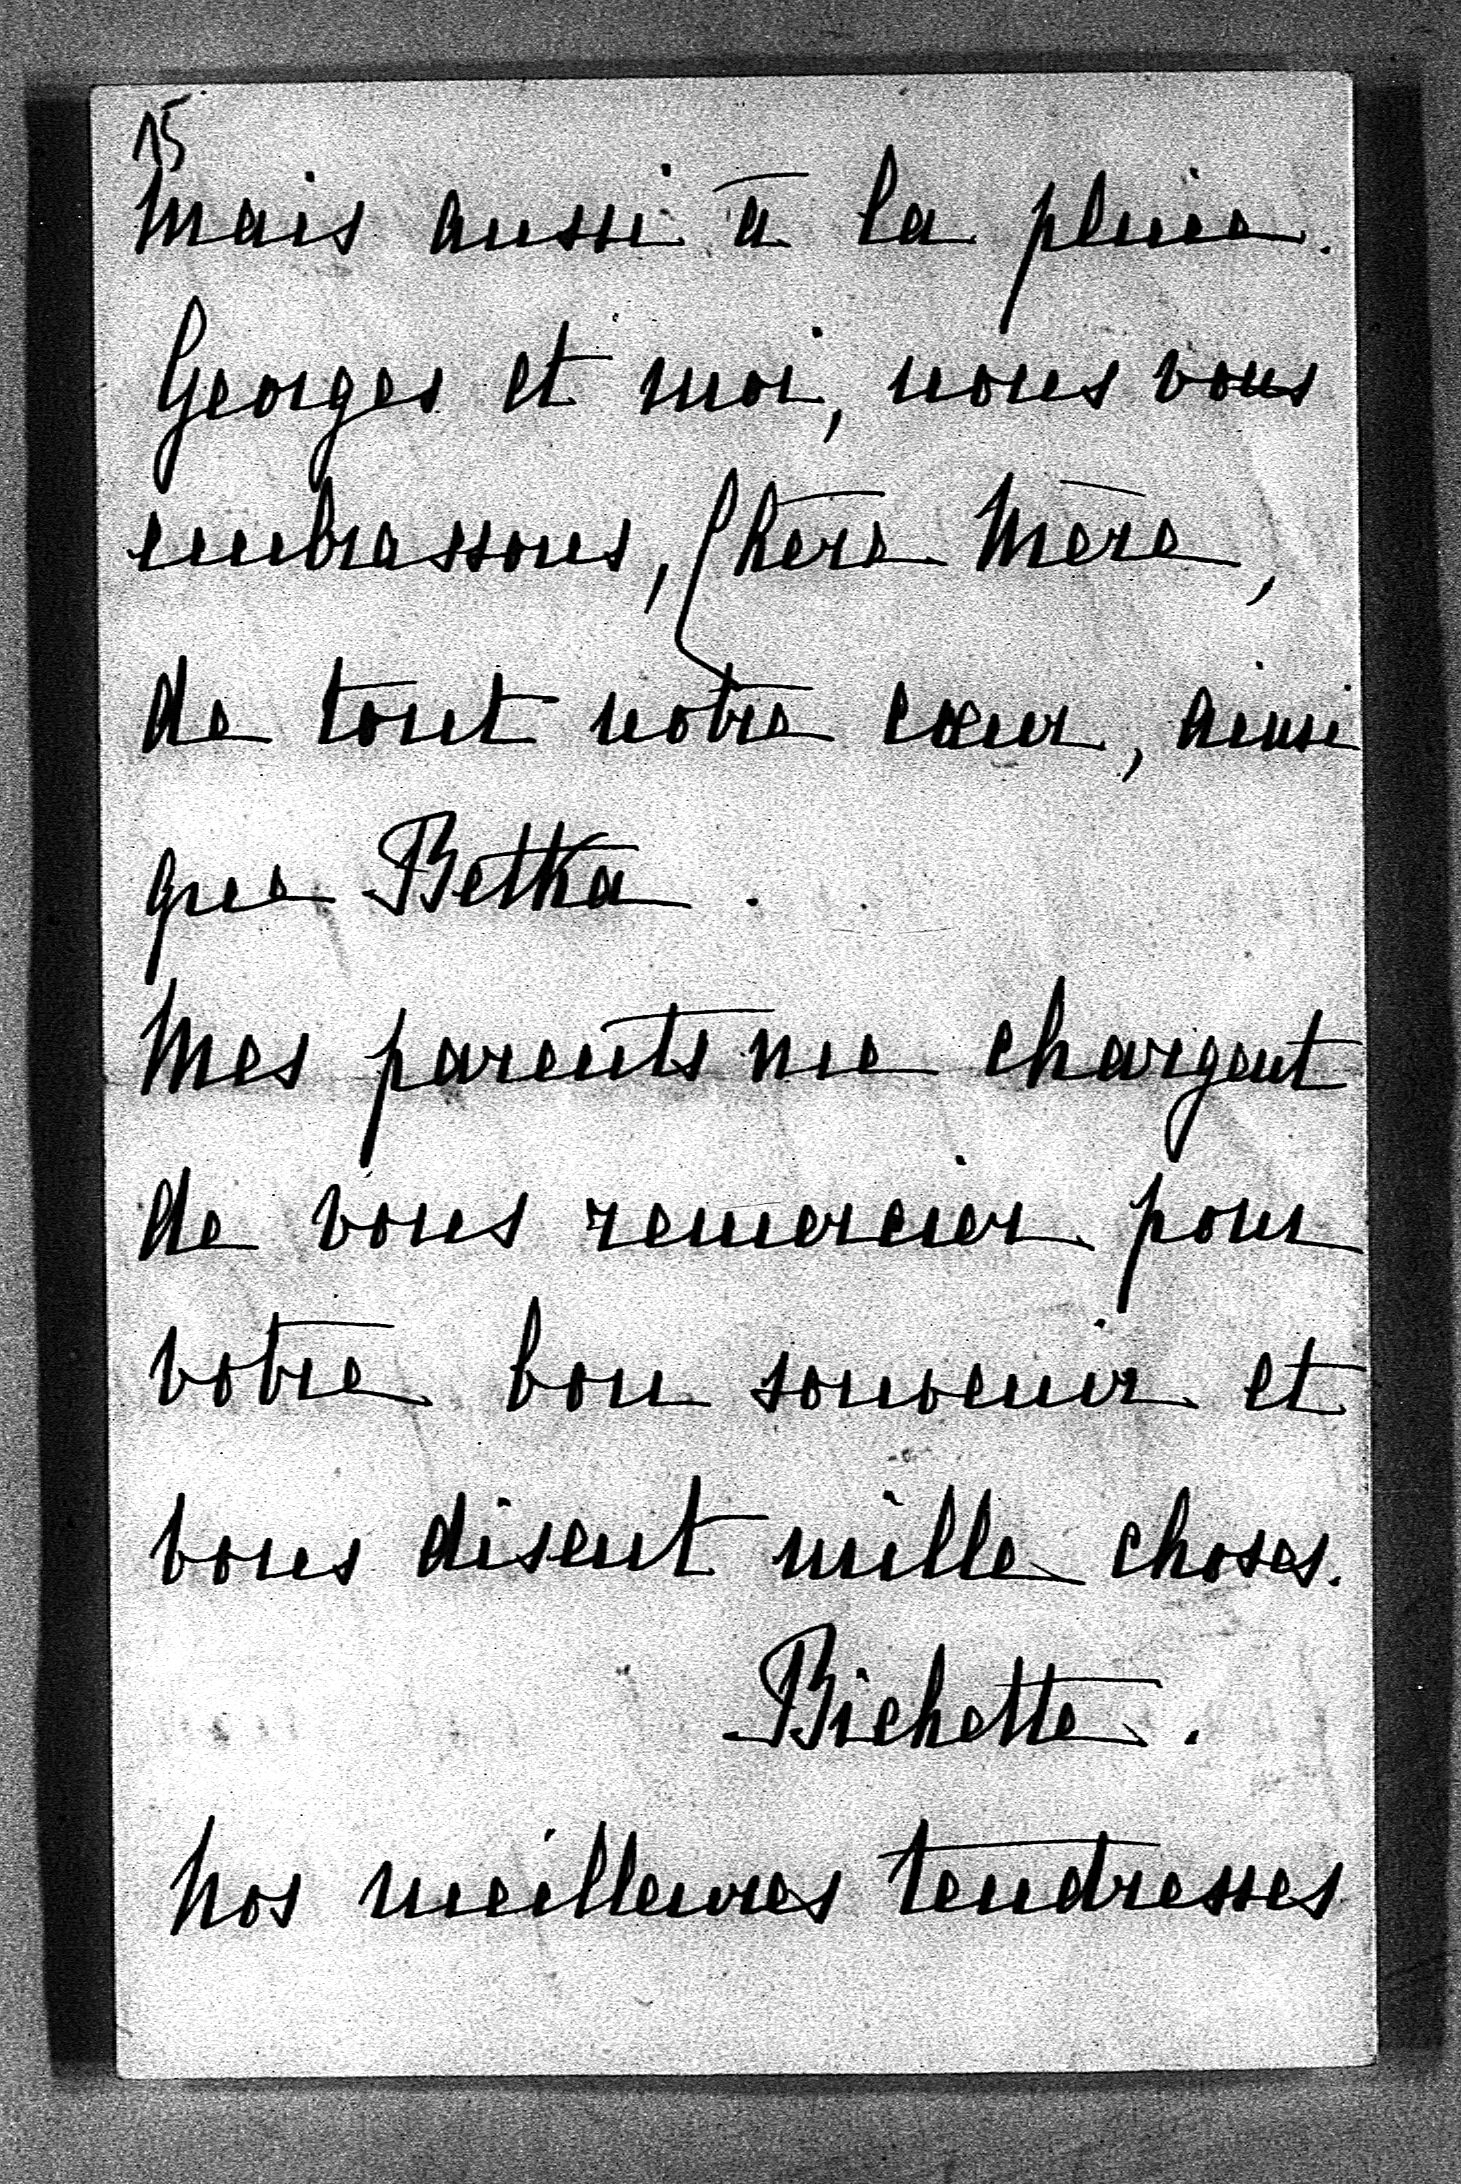 15
mais aussi à la pluie.
Georges et moi, nous vous
embrassons, Chère Mère,
de tout notre cœur, ainsi
que Betka.
Mes parents me chargent
de vous remercier pour
votre bon souvenir et
vous disent mille choses.
Bichette.
Nos meilleures tendresses